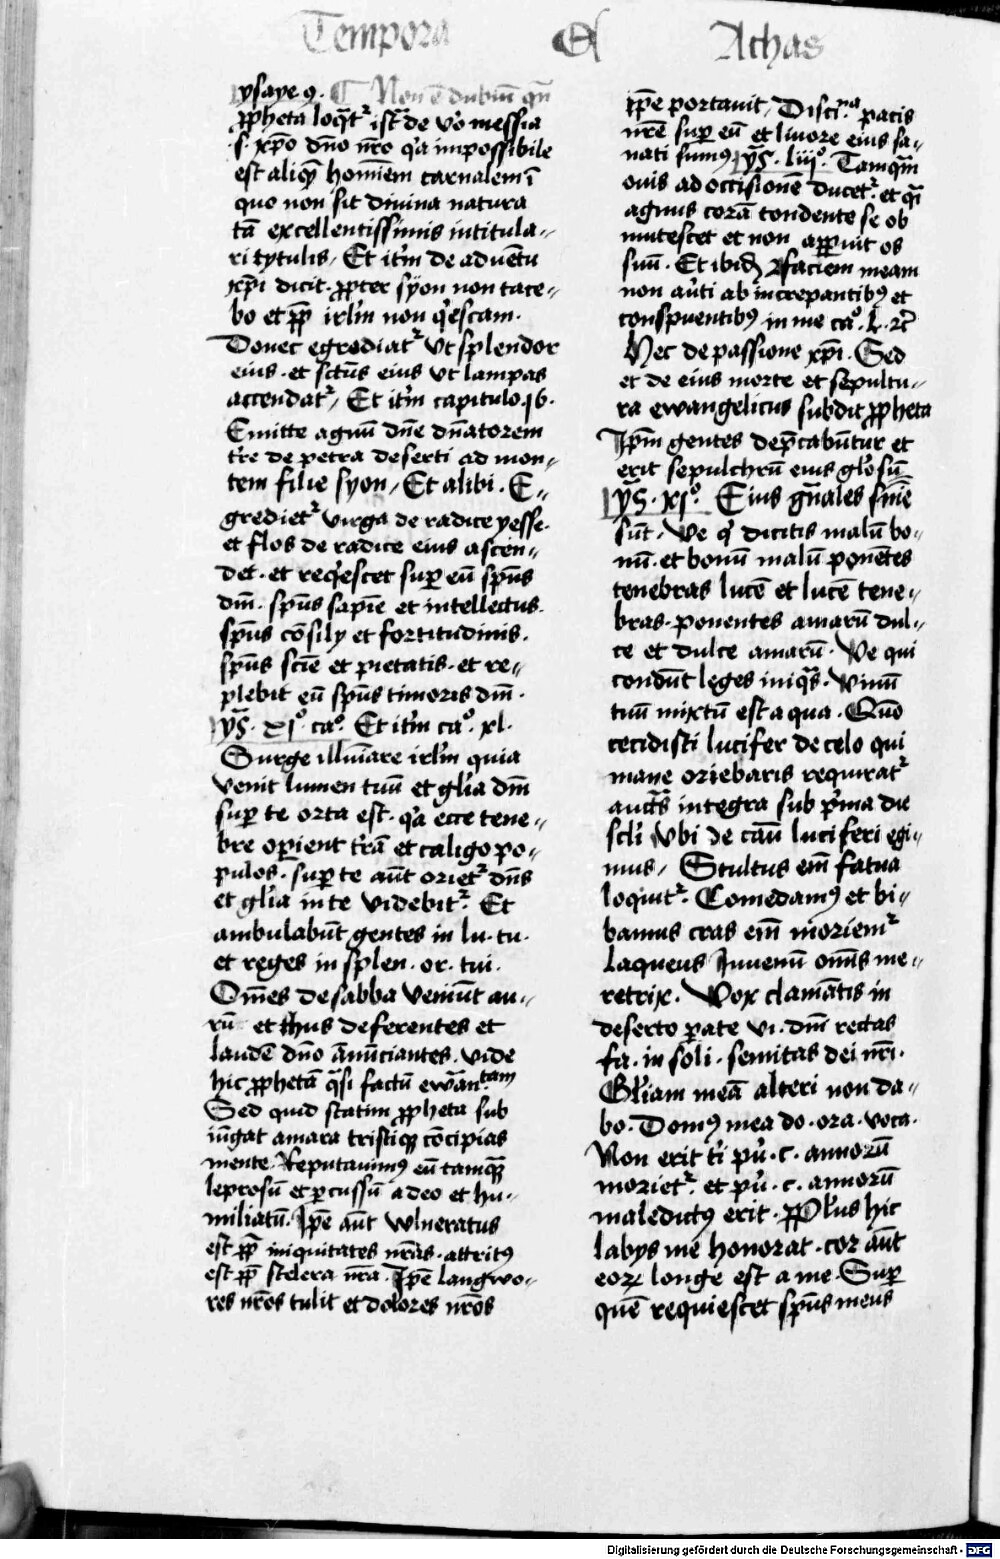 Tempora Et Achas
ysaye 9. Non ē dubiū qn̄
ꝓpheta loqͣtʳ isť de v̓o messia
.s. xp̄o dn̄o nr̄o q̓a impossibile
est aliqͥ hominem carnalem ī
quo non sit divina natura
tā excellentissimis intitula-
ri tytulis, Et itm̄ de aduētu
xp̄i dicit. ꝓpter syon non tace-
bo et ꝓp̄ irl̄m non q̓escam.
Donec egrediatʳ vt splendor
eius. et sctūs eius vt lampas
accendatʳ, Et itm̄ capitulo. 16.
Emitte agnū dn̄e dn̄atorem
tr̄e de petra deserti ad mon-
tem filie syon, Et alibi. E-
gredietʳ virga de radice yesse.
et flos de radice eius ascen-
det. et req̓escet suꝑ eū spūs
dm̄. spūs sapīe et intellectus.
spūs cōsily et fortitudinis.
spūs scīe et pietatis. et re-
plebit eū spūs timoris dm̄.
ys̄. xi°. ca°. Et itm̄ ca°. xl.
Surge illuīare irl̄m quia
venit lumen tuū et gl̄ia dm̄
suꝑ te orta est. q̓a ecce tene-
bre oꝑient tr̄ā et caligo po-
pulos. suꝑ te aūt orietʳ dn̄s
et gl̄ia in te videbitʳ. Et
ambulabūt gentes in lu. tu.
et reges in splen. or. tui.
Om̄es de sabba veniūt au-
rū et thus deferentes et
laudē dn̄o ānūciantes. vide
hic ꝓphetā qͣsi factū ewan.tam
Sed quid statim ꝓpheta sub
iūgat amara tristiqꝫ cōcipias
mente. Reputauimꝰ eū tamqͣꝫ
leprosū et ꝑcussū a deo et hu-
miliatū. Ip̄e aūt wlneratus
est ꝓp̄ iniquitates nr̄as. attritꝰ
est ꝓp̄ scelera nr̄a. Ip̄e langwo-
res nr̄os tulit et dolores nr̄os
ip̄e portauit, Disciᵖⁿᵃ pacis
nr̄e suꝑ eū et liuore eius sa-
nati sumꝰ ys̄. liij°. Tamqͣm
ouis ad occisionē ducetʳ. et qͣ̄
agnus corā tondente se ob
mutescet et non aꝑuit os
suū. Et ibidꝫ faciem meam
non au̓ti ab increpantibꝰ et
conspuentibꝰ in me ca°. L. ⁊c̄
Hec de passione xp̄i. Sed
et de eius morte et sepultu-
ra ewangelicus subdit ꝓpheta
Ip̄m gentes dep̄cabūtur et
erit sepulchrū eius gl̓osū
ys̄. xi°. Eius gn̄ales snīe
sūt, Ve q̓ dicitis malū bo-
nū. et bonū malū ponētes
tenebras lucē et lucē tene-
bras. ponentes amarū dul-
ce et dulce amarū. Ve qui
condūt leges iniqͣs. Vinū
tuū mixtū est aqua. Quō
cecidisti lucifer de celo qui
mane oriebaris requiratʳ
aucts̄ integra sub p̓ma die
scl̓i vbi de casū luciferi egi-
mus, Stultus em̄ fatua
loquitʳ. Comedamꝰ et bi-
bamus cras em̄ moriemʳ
Laqueus Iuuenū om̄is me-
retrix. Vox clamātis in
deserto ꝑate vi. dm̄ rectas
fa. in soli. semitas dei nr̄i.
Gl̓iam meā alteri non da-
bo. Domꝰ mea do. ora. voca.
Non erit ti̓ pu̓. c. annorū
morietʳ. et pu̓. c. annorū
maledictꝰ erit. ꝓpl̓us hic
labys me honorat. cor aūt
eorꝝ longe est a me. Suꝑ
quē requiescet spūs meus
Digitalisierung gefördert durch die Deutsche Forschungsgemeinschaft - DFG